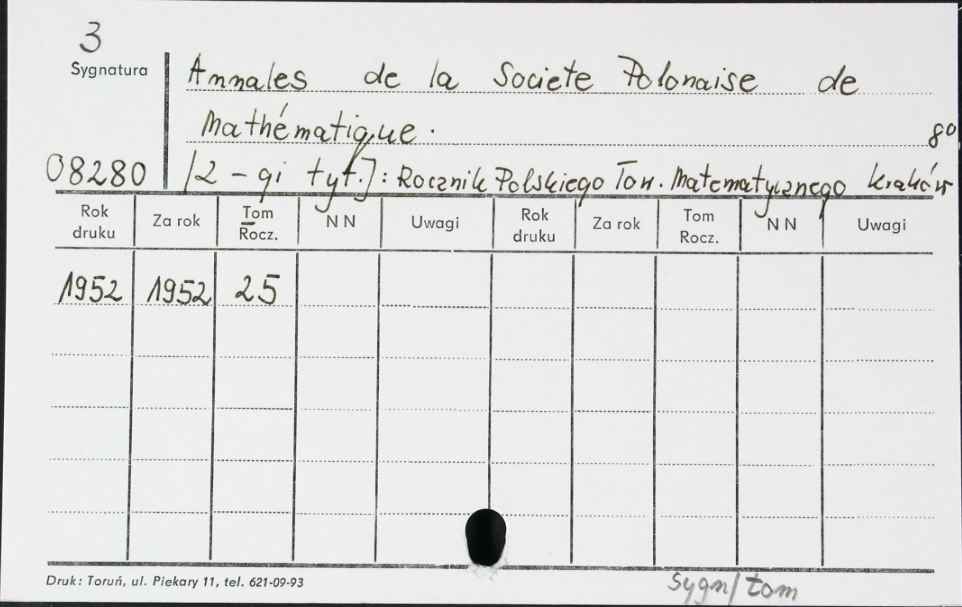 3
Sygnatura
Annales de la Societe Polonaise de
Mathématique.
8°
08280
[2-gi tyt.]: Rocznik Polskiego Tow. Matematycznego Kraków
Rok druku Za rok Tom Rocz. NN Uwagi Rok druku Za rok Tom Rocz. NN Uwagi
1952 1952 25
Druk: Toruń, ul. Piekary 11, tel. 621-09-93
sygn/tom